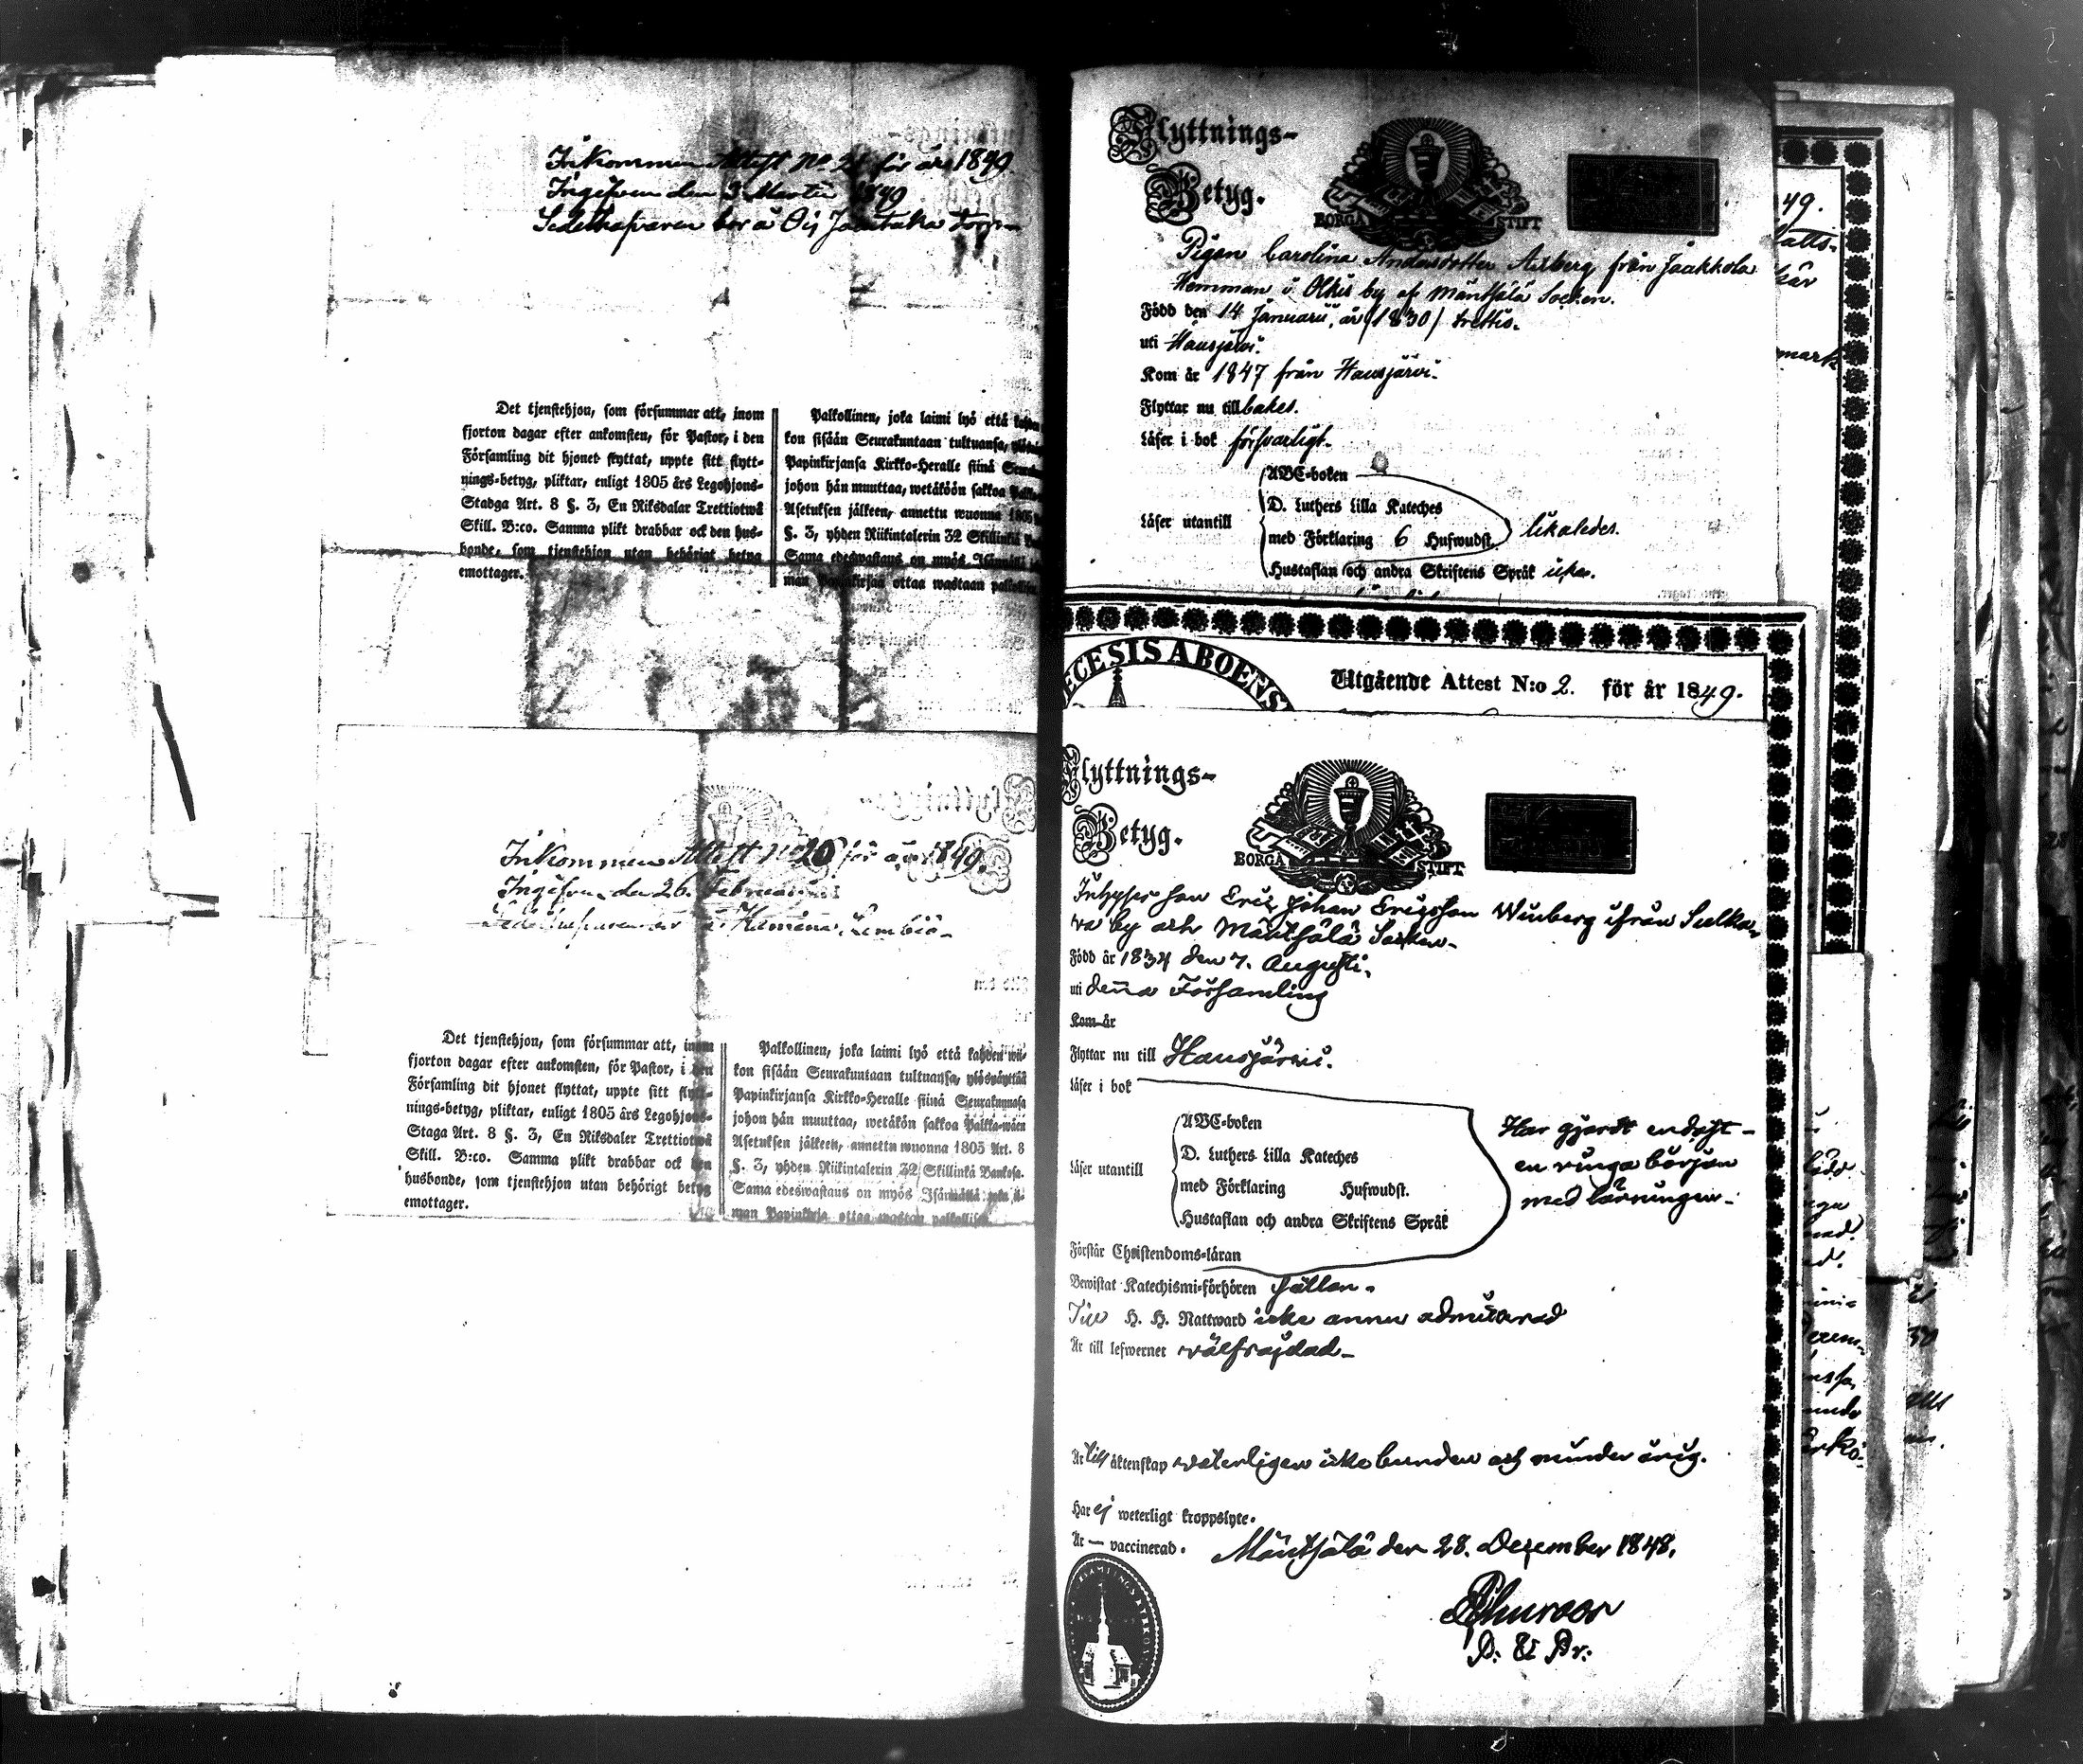 Inkommen Attest No 21 för år 1849.
Ingifven den 3 Martii 1849
Sedelhafvaren bor å Oij torp
Det tjenstehjon, som försummar att, inom
fjorton dagar efter ankomsten, för Pastor, i den
Församling dit hjonet flyttat, uppte sitt flytt-
nings-betyg, pliktar, enligt 1805 års Legohjons-
Stadga Art. 8 §. 3, En Riksdalar Trettiotwå
Skill. B:co. Samma plikt drabbar ock den hus-
bonde, som tjenstehjon utan behörigt betyg
emottager.
Palkollinen, joka laimi lyö että kahden
kon sisään Seurakuntaan tultuansa,
Papinkirjansa Kirkko-Heralle siinä
johon hän muuttaa, wetäköön sakkoa
Asetuksen jälkeen, annettu wuonna 1805
§. 3, yhden Riikintalerin 32 Skillinkiä
Sama edeswastaus on myös Isännällä
man Papinkirjaa ottaa wastaan palkollisen
Inkommen Attest No 20 för år 1849.
Ingifven den 26. Februarii
Sedelhafvaren
Det tjenstehjon, som försummar att, inom
fjorton dagar efter ankomsten, för Pastor, i den
Församling dit hjonet flyttat, uppte sitt flytt-
nings-betyg, pliktar, enligt 1805 års Legohjons-
Staga Art. 8 §. 3, En Riksdaler Trettiotwå
Skill. B:co. Samma plikt drabbar ock den
husbonde, som tjenstehjon utan behörigt betyg
emottager.
Palkollinen, joka laimi lyö että kahden wii-
kon sisään Seurakuntaan tultuansa, ylösnäyttää
Papinkirjansa Kirkko-Heralle siinä Seurakunnasa
johon hän muuttaa, wetäkön sakkoa Palkka-wäen
Asetuksen jälkeen, annettu wuonna 1805 Art. 8
§. 3, yhden Riikintalerin 32 Skillinkiä Bankosa.
Sama edeswastaus on myös Isännällä joka il-
man Papinkirja ottaa wastan palkollisen
Flyttnings-
Betyg.
BORGÅ STIFT
Pigan Carolina Andersdotter Asberg från Jaakkola
Hemman i Olkis by af Mäntsälä Socken.
Född den 14 Januarii, år /1830/ trettio.
uti Hausjärvi.
Kom år 1847 från Hausjärvi.
Flyttar nu tillbakes.
Läser i bok försvarligt.
Läser utantill
ABC-boken
D. Luthers Lilla Kateches
med Förklaring 6 Hufwudst.
likaledes.
Hustaflan och andra Skriftens Språk icke.
ECESIS ABOENS
Utgående Attest N:o 2. för år 1849.
Flyttnings-
Betyg.
BORGÅ STIFT
Inhyses son Eric Johan Ericsson Winberg ifrån Sulka-
va by och Mäntsälä Socken.
Född år 1834 den 7. Augusti.
uti denna Församling
Kom år
Flyttar nu till Hausjärvi.
Läser i bok
Läser utantill
ABC-boken
D. Luthers Lilla Kateches
med Förklaring Hufwudst.
Hustaflan och andra Skriftens Språk
Har gjordt endast
en ringa början
med läsningen.
Förstår Christendoms-läran
Bewistat Katechismi-förhören sällan.
Till H. H. Nattward icke ännu admitterad
Är till lefwernet välfrejdad
Är till äktenskap veterligen icke bunden och minder årig.
Har ej weterligt kroppslyte.
Är — vaccinerad.
Mäntsälä den 28. December 1848.